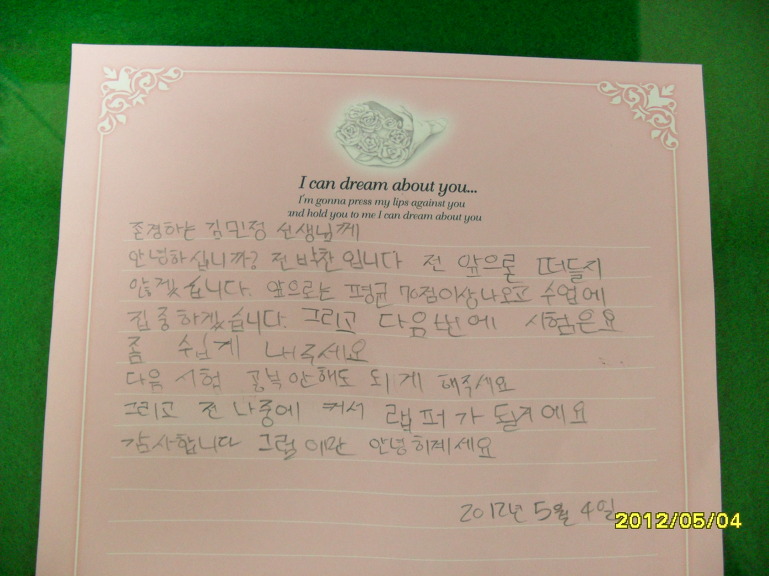 I can dream about you...
I'm gonna press my lips against you
and hold you to me I can dream about you
존경하는 김민정 선생님께
안녕하십니까? 전 박찬입니다 전 앞으론 떠들지
않겠습니다. 앞으로는 평균 70점이상나오고 수업에
집중하겠습니다. 그리고 다음번에 시험은요
좀 쉽게 내주세요
다음 시험 공부안해도 되게 해주세요
그리고 전 나중에 커서 랩퍼가 될거에요
감사합니다 그럼이만 안녕히계세요
2012년 5월 4일
2012/05/04